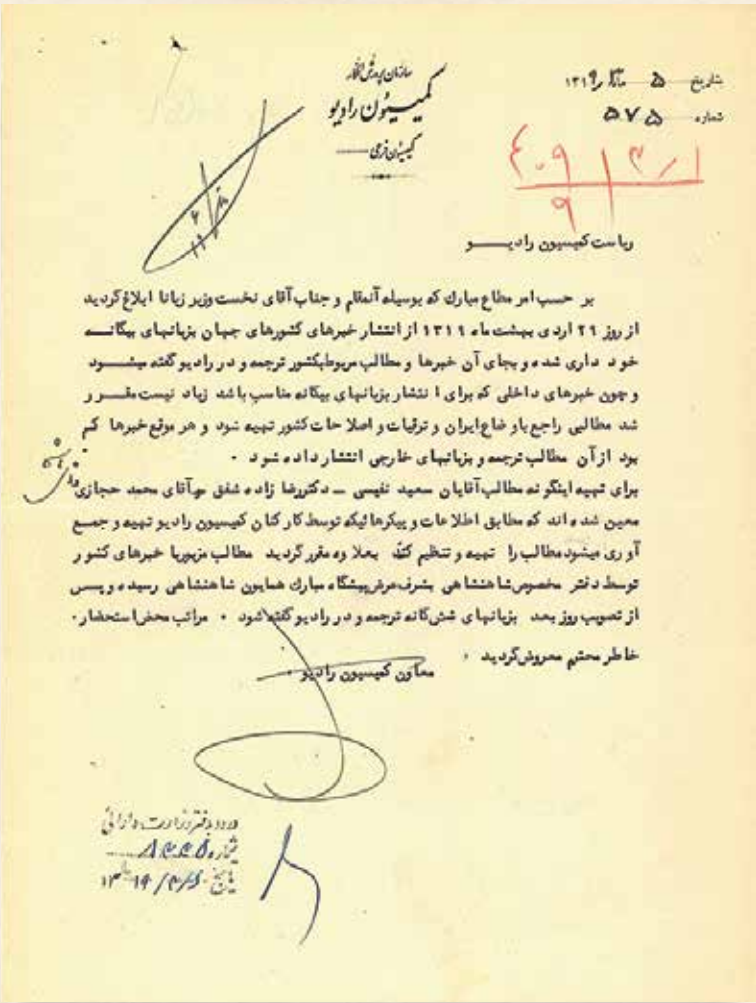 سازمان پرورش افکار
کمیسیون رادیو
کمیسیون فرعی
بتاریخ ۵ ماه ۱۳۱۹
شماره ۵۷۵
ریاست کمیسیون رادیو
بر حسب امر مطاع مبارك که بوسیله آنمقام و جناب آقای نخست وزیر زبانا ابلاغ گردید
از روز ۲۹ اردی بهشت ماه ۱۳۱۹ از انتشار خبرهای کشورهای جهان بزبانهای بیگانه
خود داری شده و بجای آن خبرها و مطالب مربوط بکشور ترجمه و در رادیو گفته میشود
و چون خبرهای داخلی که برای انتشار بزبانهای بیگانه مناسب باشد زیاد نیست مقرر
شد مطالبی راجع باوضاع ایران و ترقیات و اصلاحات کشور تهیه شود و هر موقع خبرها کم
بود از آن مطالب ترجمه و بزبانهای خارجی انتشار داده شود ۰
برای تهیه اینگونه مطالب آقایان سعید نفیسی ــ دکتر رضا زاده شفق و آقای محمد حجازی
معین شده اند که مطابق اطلاعات و پیکرهائیکه توسط کارکنان کمیسیون رادیو تهیه و جمع
آوری میشود مطالب را تهیه و تنظیم کنند بعلاوه مقرر گردید مطالب مزبور با خبرهای کشور
توسط دفتر مخصوص شاهنشاهی بشرف عرض پیشگاه مبارك همایون شاهنشاهی رسیده و پس
از تصویب روز بعد بزبانهای شش گانه ترجمه و در رادیو گفته شود ۰ مراتب محض استحضار
خاطر محترم معروض گردید ۰
معاون کمیسیون رادیو ۰
ورود بدفتر وزارت دارائی
شماره
تاریخ